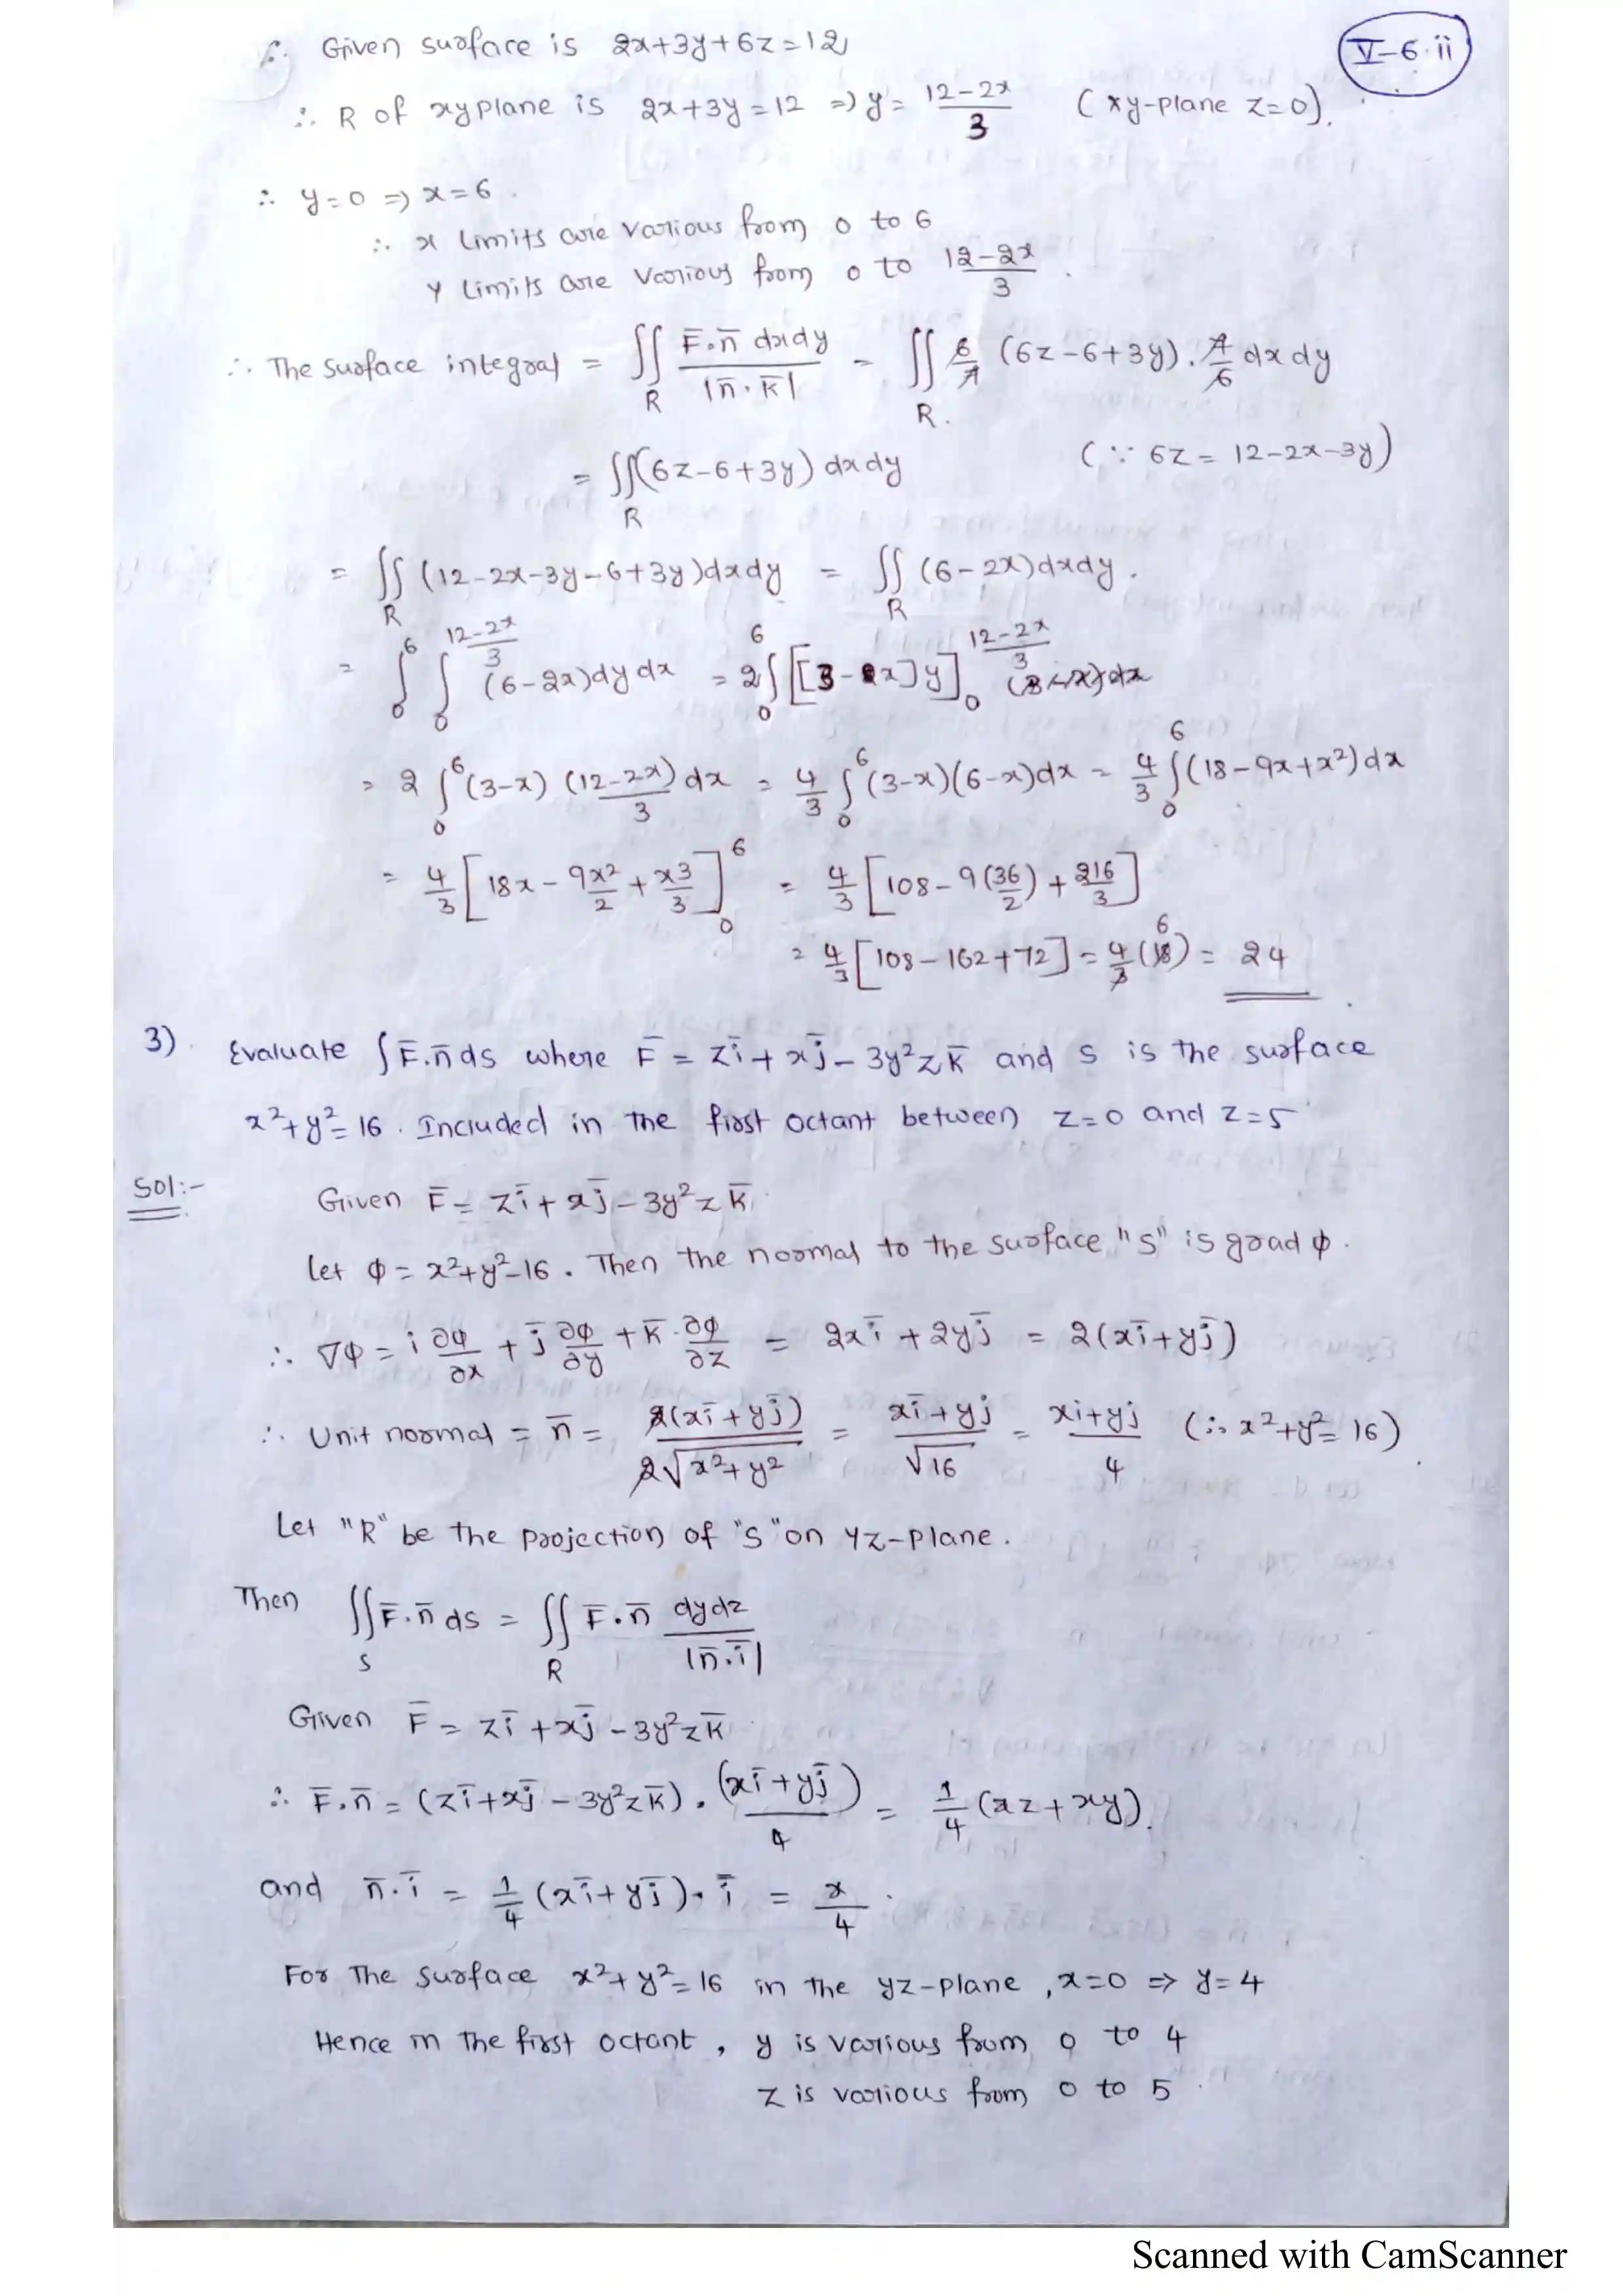 V-6.ii
∴ Given surface is 2x+3y+6z=12
∴ R of xy plane is 2x+3y=12 ⇒ y = (12-2x)/3 (xy-plane z=0).
∴ y=0 ⇒ x=6.
∴ x limits are various from 0 to 6
y limits are various from 0 to (12-2x)/3.
∴ The surface integral = ∬_R F̄.n̄ dxdy / |n̄.k̄| = ∬_R 6/7 (6z-6+3y). 7/6 dxdy
= ∬_R (6z-6+3y) dxdy (∵ 6z = 12-2x-3y)
= ∬_R (12-2x-3y-6+3y)dxdy = ∬_R (6-2x)dxdy.
= ∫_0^6 ∫_0^{(12-2x)/3} (6-2x)dydx = 2∫_0^6 [[3-x]y]_0^{(12-2x)/3} dx
= 2 ∫_0^6 (3-x) (12-2x)/3 dx = 4/3 ∫_0^6 (3-x)(6-x)dx = 4/3 ∫_0^6 (18-9x+x²)dx
= 4/3 [18x - 9x²/2 + x³/3]_0^6 = 4/3 [108 - 9(36/2) + 216/3]
= 4/3 [108-162+72] = 4/3 (18) = 24
3). Evaluate ∫F̄.n̄ds where F̄ = zī+xj̄-3y²zk̄ and s is the surface
x²+y²=16. Included in the first octant between z=0 and z=5
Sol:-
Given F̄ = zī+xj̄-3y²zk̄.
Let φ = x²+y²-16. Then the normal to the surface "s" is grad φ.
∴ ∇φ = i ∂φ/∂x + j̄ ∂φ/∂y + k̄.∂φ/∂z = 2xī+2yj̄ = 2(xī+yj̄)
∴ Unit normal = n̄ = 2(xī+yj̄)/2√(x²+y²) = (xī+yj)/√16 = (xi+yj)/4 (∴ x²+y²=16).
Let "R" be the projection of "s" on yz-plane.
Then ∬_S F̄.n̄ ds = ∬_R F̄.n̄ dydz/|n̄.ī|
Given F̄ = zī+xj̄-3y²zk̄
∴ F̄.n̄ = (zī+xj̄-3y²zk̄).(xī+yj̄)/4 = 1/4 (xz+xy).
and n̄.ī = 1/4 (xī+yj̄).ī = x/4.
For The surface x²+y²=16 in the yz-plane, x=0 ⇒ y=4
Hence in the first octant, y is various from 0 to 4
z is various from 0 to 5.
Scanned with CamScanner